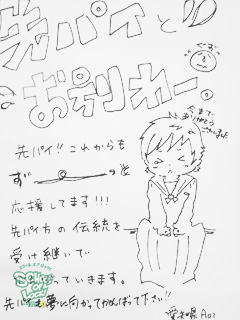 先パイと
お別れー。
ぐす
今まで
ありがとう
先パイ!! これからも
ずーーっと
応援してます!!!
先パイ方の伝統を
受け継いで
っていきます。
先パイも夢に向かってがんばって下さい!!